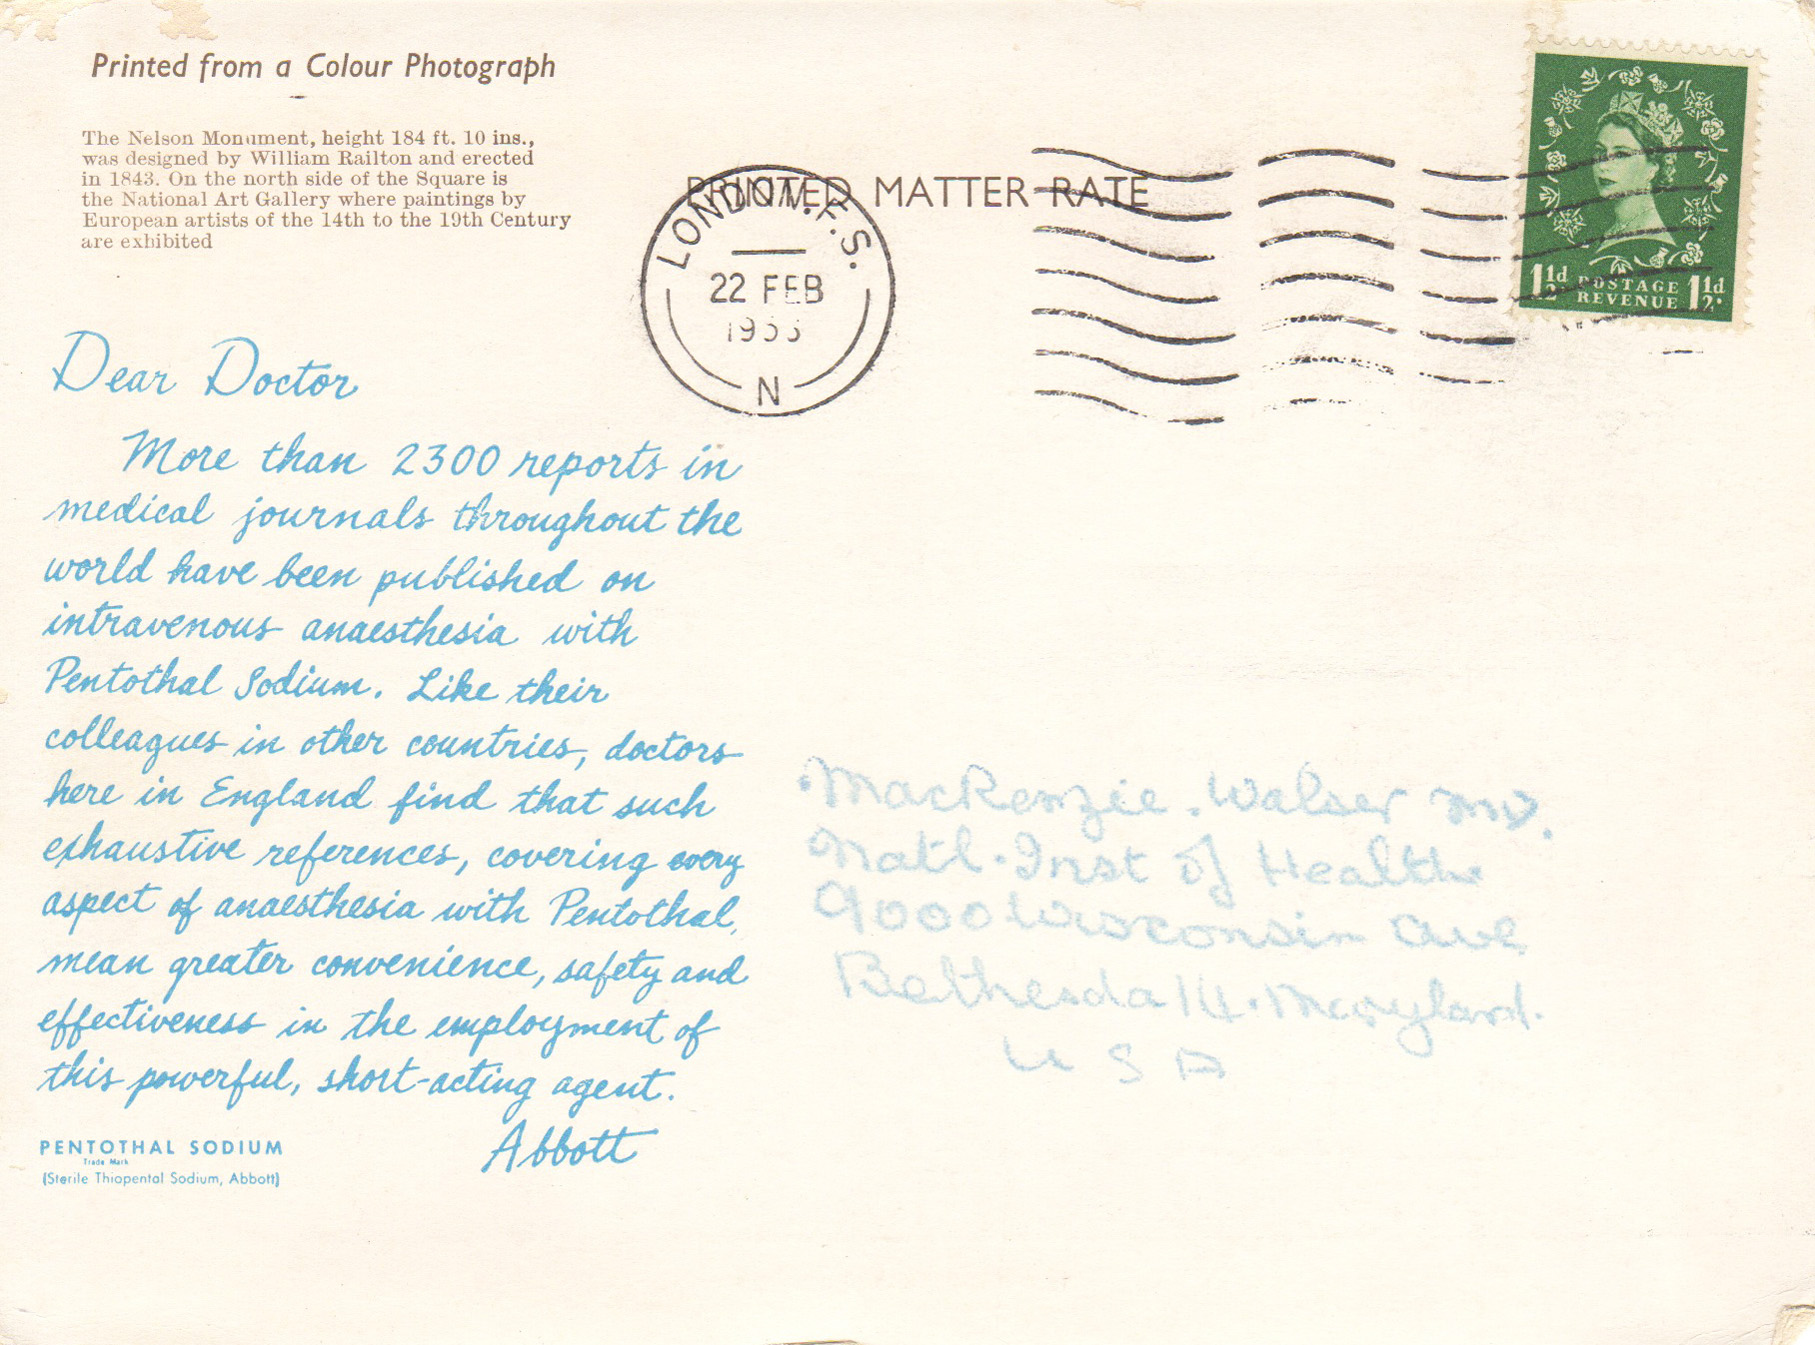 Printed from a Colour Photograph
The Nelson Monument, height 184 ft. 10 ins.,
was designed by William Railton and erected
in 1843. On the north side of the Square is
the National Art Gallery where paintings by
European artists of the 14th to the 19th Century
are exhibited
PRINTED MATTER RATE
LONDON. F.S.
22 FEB
N
1½d POSTAGE 1½d.
REVENUE
Dear Doctor
More than 2300 reports in
medical journals throughout the
world have been published on
intravenous anaesthesia with
Pentothal Sodium. Like their
colleagues in other countries, doctors
here in England find that such
exhaustive references, covering every
aspect of anaesthesia with Pentothal,
mean greater convenience, safety and
effectiveness in the employment of
this powerful, short-acting agent.
Abbott
PENTOTHAL SODIUM
Trade Mark
(Sterile Thiopental Sodium, Abbott)
MacKenzie. Walser MD.
Natl. Inst of Health
9000 Wisconsin Ave
Bethesda 14. Maryland.
U S A